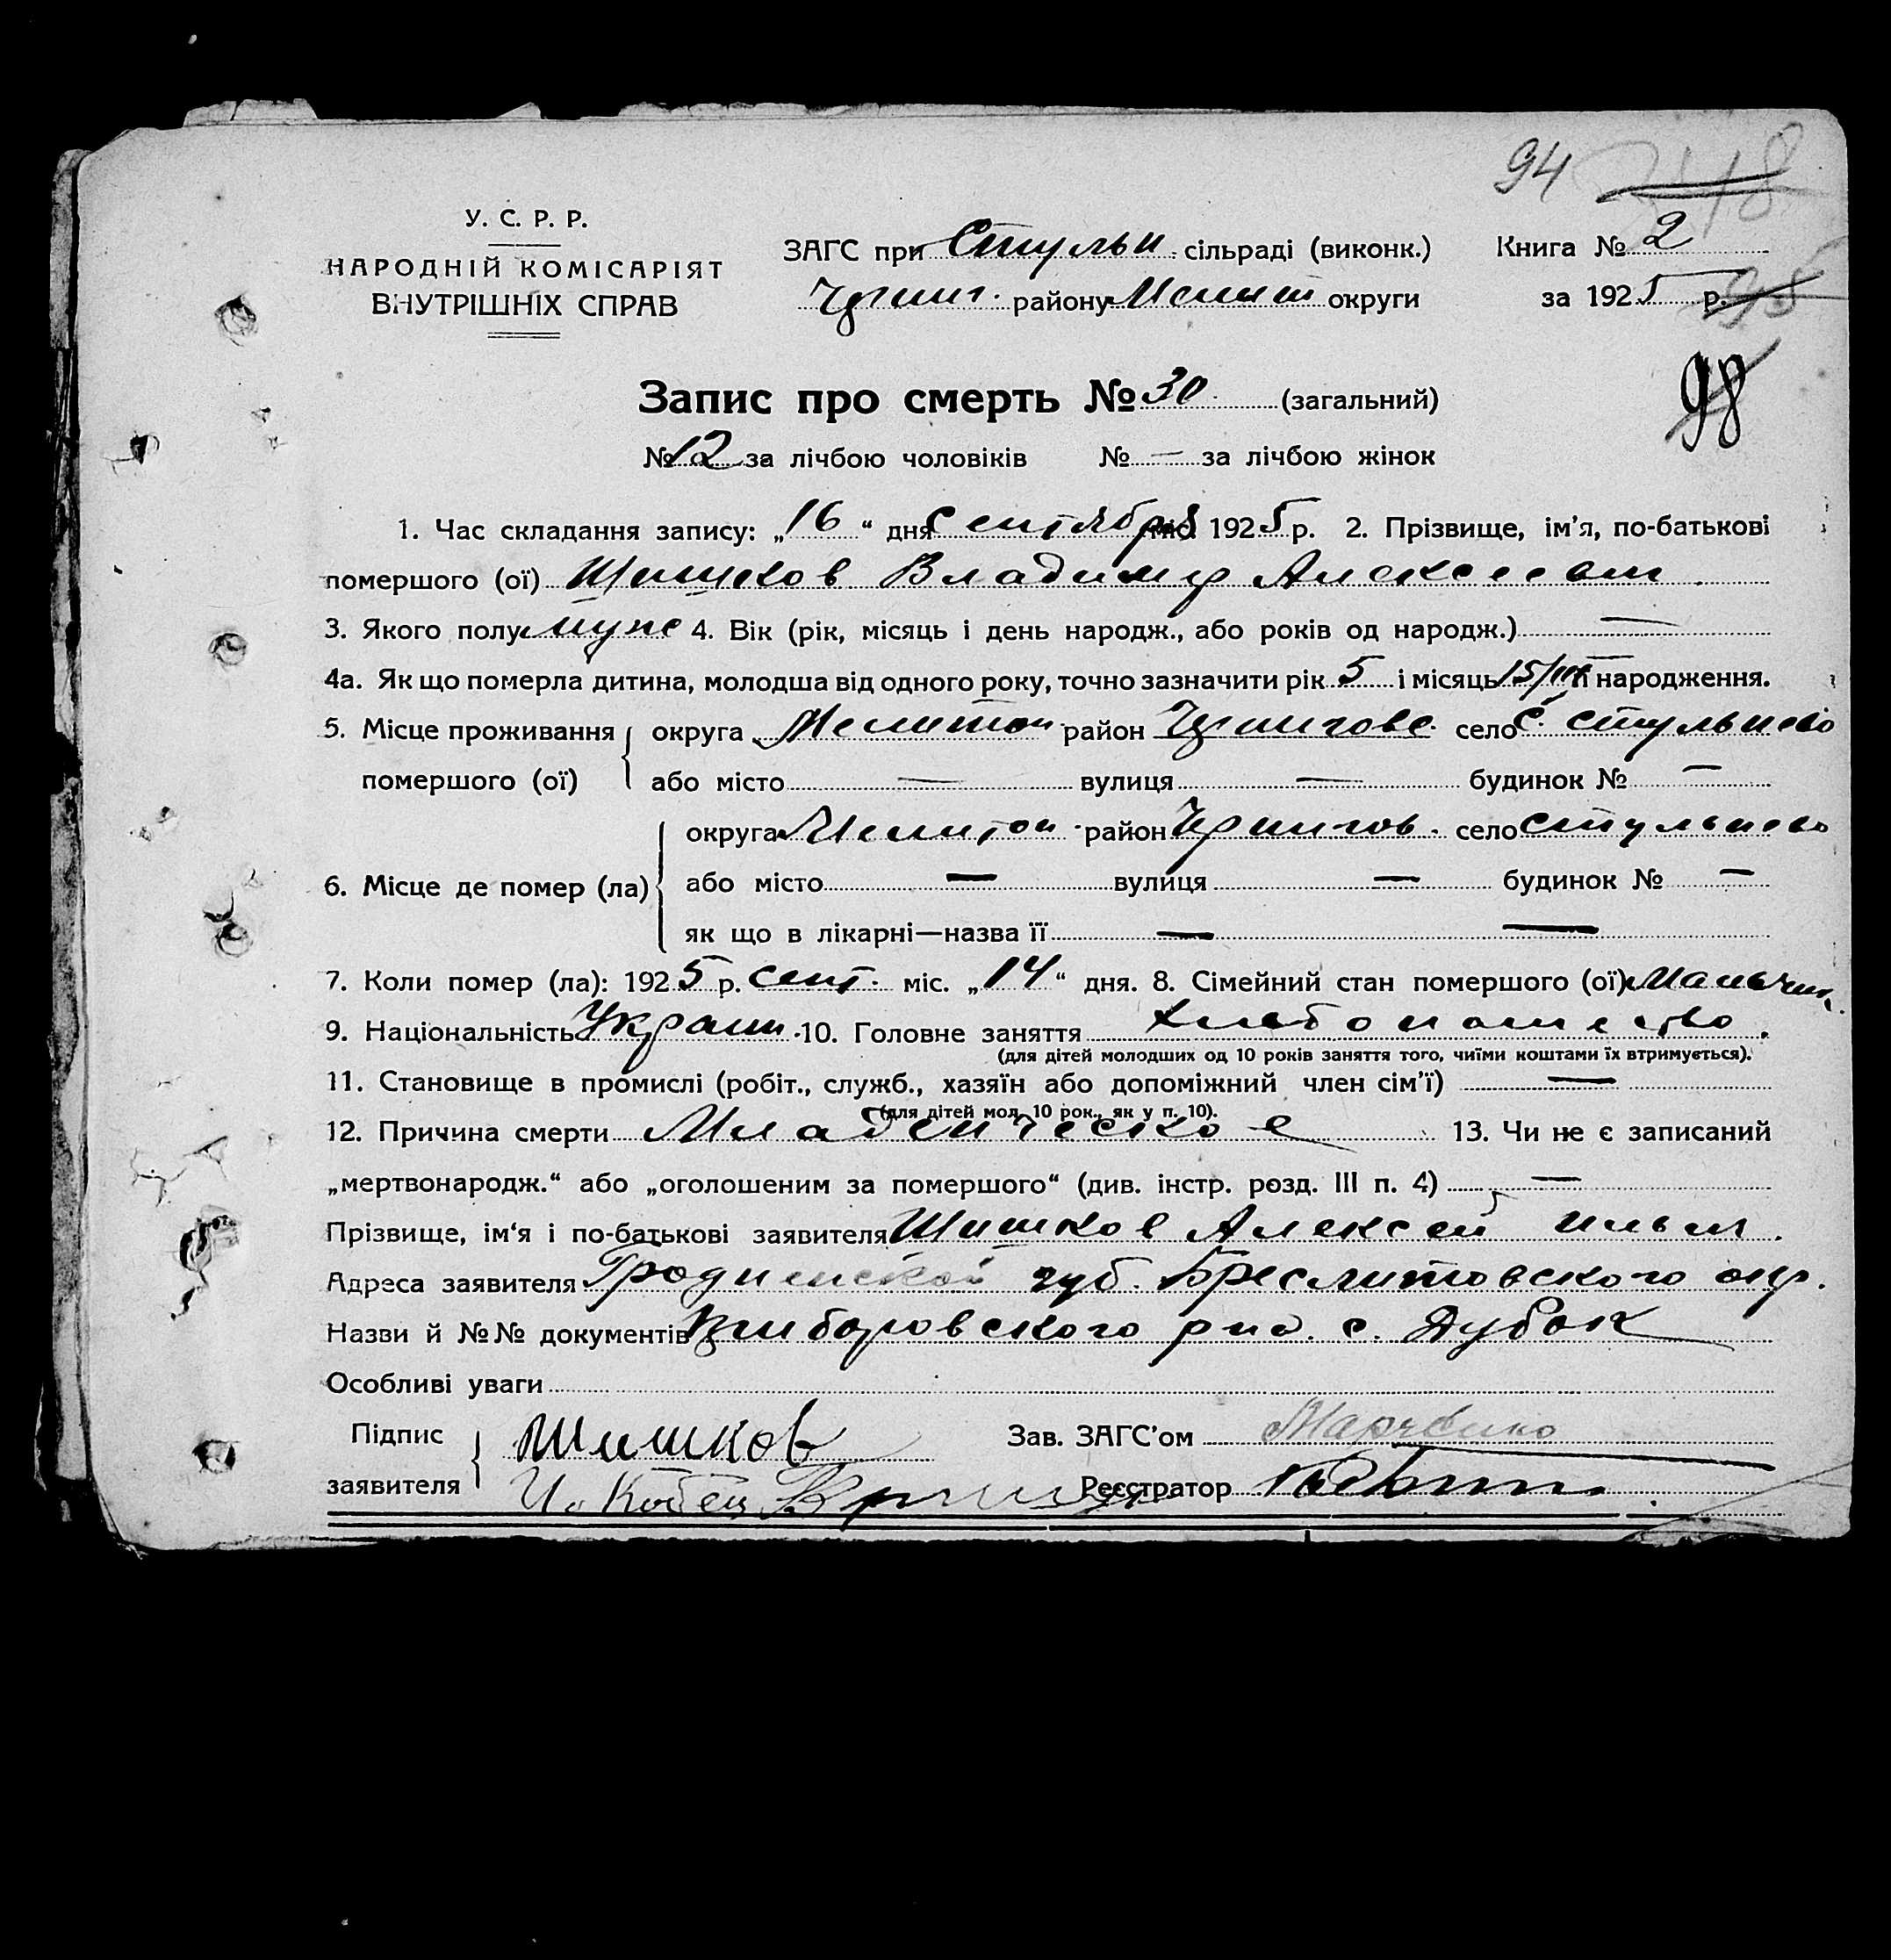 94 348
У. С. Р. Р.
НАРОДНІЙ КОМІСАРІЯТ
ВНУТРІШНІХ СПРАВ
ЗАГС при Стульн. сільраді (виконк.)
Книга № 2
району Мелит округи
за 1925 р. 95
98
Запис про смерть № 30. (загальний)
№ 12 за лічбою чоловіків № — за лічбою жінок
1. Час складання запису: „16“ дня Сентября міс. 1925 р. 2. Прізвище, ім’я, по-батькові
помершого (ої) Шишков Владимир Алексеевич.
3. Якого полу муж 4. Вік (рік, місяць і день народж., або років од народж.) —
4а. Як що померла дитина, молодша від одного року, точно зазначити рік 5 і місяць 15/ її народження.
5. Місце проживання помершого (ої) округа Мелитоп. район село с. Стульнево
або місто — вулиця — будинок № —
6. Місце де помер (ла) округа Мелитоп. район Чернигов. село Стульнево
або місто — вулиця — будинок № —
як що в лікарні—назва її — —
7. Коли помер (ла): 1925 р. сент. міс. „14“ дня. 8. Сімейний стан помершого (ої) Мальчик.
9. Національність Украин. 10. Головне заняття Хлебопашество.
(для дітей молодших од 10 років заняття того, чиїми коштами їх втримується).
11. Становище в промислі (робіт., служб., хазяїн або допоміжний член сім’ї) —
(для дітей мол. 10 рок., як у п. 10).
12. Причина смерти Младенческое 13. Чи не є записаний
„мертвонародж.“ або „оголошеним за помершого“ (див. інстр. розд. III п. 4) —
Прізвище, ім‘я і по-батькові заявителя Шишков Алексей Ильич.
Адреса заявителя Гродненской губ. Бреслитовского окр.
Назви й №№ документів с. Дубок
Особливі уваги
Підпис заявителя Шишков
Зав. ЗАГС’ом
Реєстратор